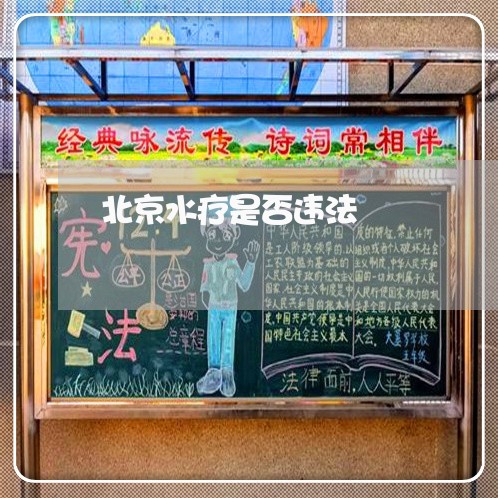 经典咏流传 诗词常相伴
北京水疗是否违法
12.4
宪
法
公平 公正
总章程
中华人民共和国
是工人阶级领导的,以
工农联盟为基础的
人民民主专政的社会主义
国家,社会主义制度是中
华人民共和国的根本制
度,中国共产党领导是中
国特色社会主义最本
质的特征,禁止任何
组织或者个人破坏社会
主义制度,中华人民共和
国的一切权利属于人民,
人民行使国家权力的机
关是全国人民代表大会
和地方各级人民代表
大会。
五年级
法律面前,人人平等